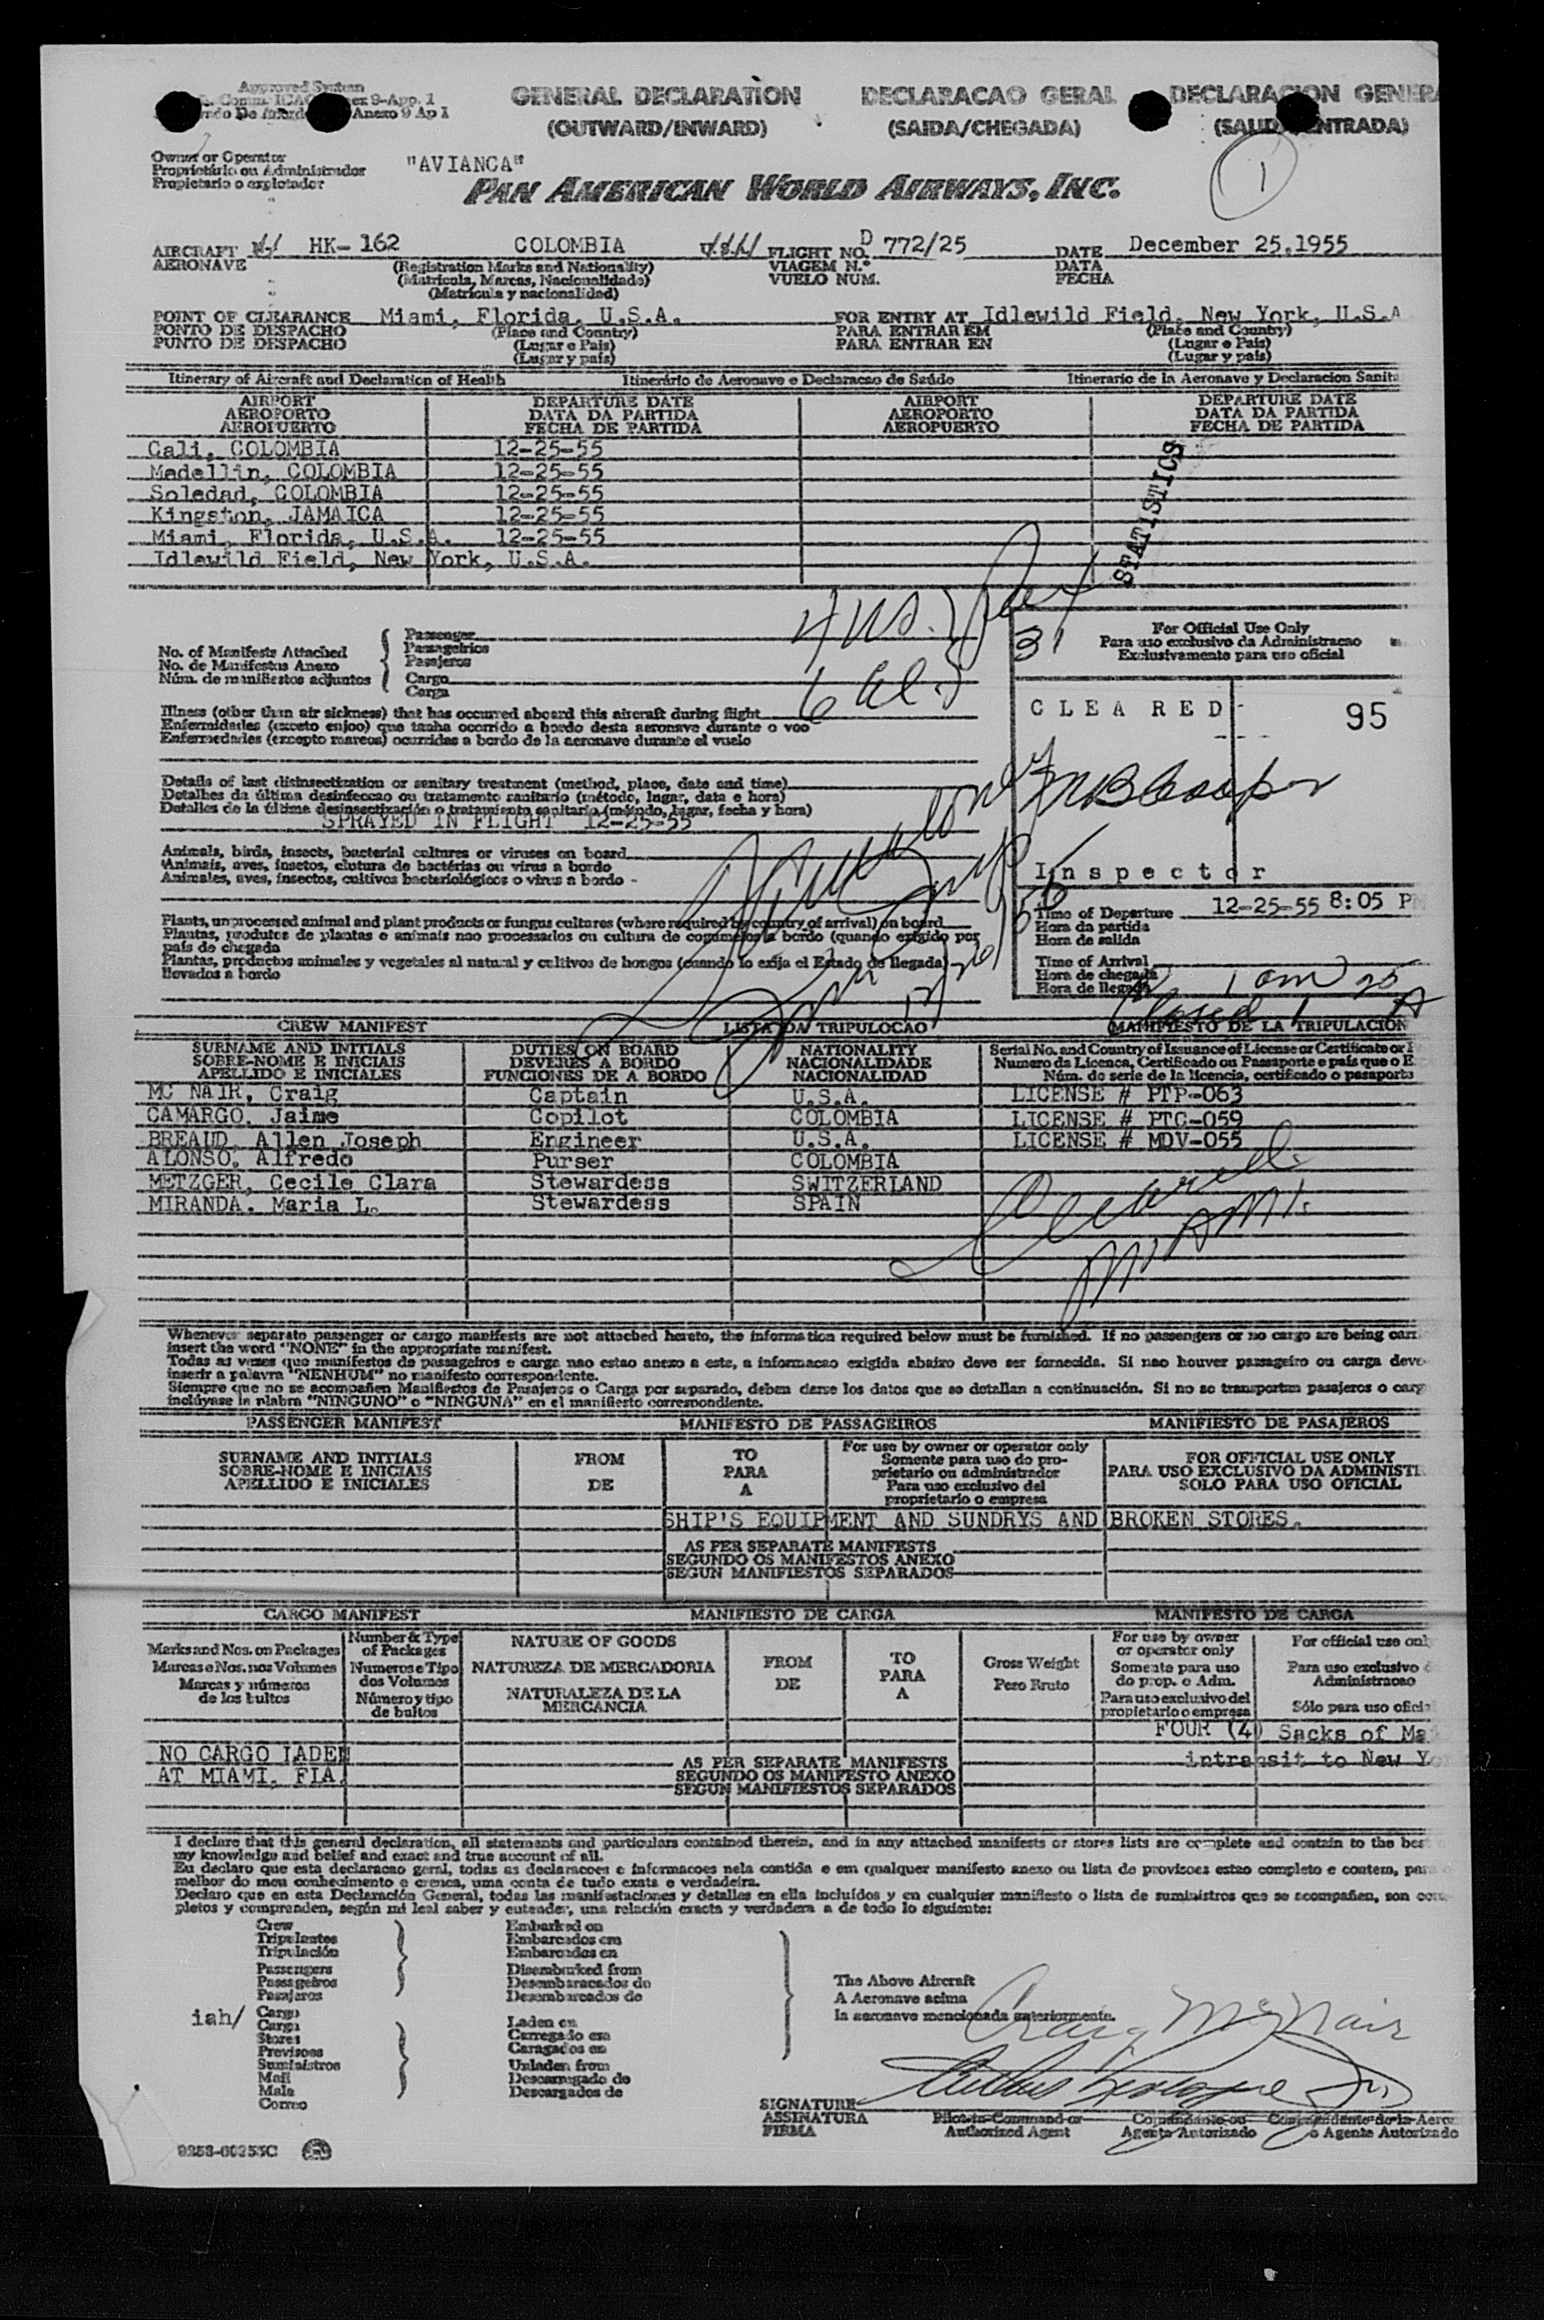 Approved System
Comm. ICAO Annex 9-App. 1
Anexo 9 Ap I
GENERAL DECLARATION
(OUTWARD/INWARD)
DECLARACAO GERAL
(SAIDA/CHEGADA)
DECLARACION GENERA
(SALIDA/ENTRADA)
1
Owner or Operator
Proprietário ou Administrador
Propietario o explotador
"AVIANCA"
PAN AMERICAN WORLD AIRWAYS, INC.
AIRCRAFT HK-162 COLOMBIA FLIGHT NO. D 772/25 DATE December 25,1955
AERONAVE (Registration Marks and Nationality) VIAGEM N.º DATA
(Matricula, Marcas, Nacionalidade) VUELO NUM. FECHA
(Matricula y nacionalidad)
POINT OF CLEARANCE Miami, Florida, U.S.A. FOR ENTRY AT Idlewild Field, New York, U.S.A
PONTO DE DESPACHO (Place and Country) PARA ENTRAR EM (Place and Country)
PUNTO DE DESPACHO (Lugar e Pais) PARA ENTRAR EN (Lugar e Pais)
(Lugar y pais) (Lugar y pais)
Itinerary of Aircraft and Declaration of Health Itinerário de Aeronave e Declaracao de Saúde Itinerario de la Aeronave y Declaracion Sanita
AIRPORT DEPARTURE DATE AIRPORT DEPARTURE DATE
AEROPORTO DATA DA PARTIDA AEROPORTO DATA DA PARTIDA
AEROPUERTO FECHA DE PARTIDA AEROPUERTO FECHA DE PARTIDA
Cali, COLOMBIA 12-25-55
Medellin, COLOMBIA 12-25-55
Soledad, COLOMBIA 12-25-55
Kingston, JAMAICA 12-25-55
Miami, Florida, U.S.A. 12-25-55
Idlewild Field, New York, U.S.A.
STATISTICS
No. of Manifests Attached
No. de Manifestus Anexo
Núm. de manifiestos adjuntos
Passenger
Passageirios
Pasajeros
Cargo
Carga
4 US.
6 al.
31
For Official Use Only
Para uso exclusivo da Administracao
Exclusivamente para uso oficial
CLEARED
95
Inspector
Illness (other than air sickness) that has occurred aboard this aircraft during flight
Enfermidades (exceto enjoo) que tanha ocorrido a bordo desta aeronave durante o voo
Enfermedades (excepto mareos) ocurridas a bordo de la aeronave durante el vuelo
Details of last disinsectization or sanitary treatment (method, place, date and time)
Detalhes da última desinfeccao ou tratamento sanitario (método, lugar, data e hora)
Detalles de la última desinsectización o tratamiento sanitario (método, lugar, fecha y hora)
SPRAYED IN FLIGHT 12-25-55
Animals, birds, insects, bacterial cultures or viruses on board
Animais, aves, insetos, clutura de bactérias ou virus a bordo
Animales, aves, insectos, cultivos bacteriológicos o virus a bordo
Plants, unprocessed animal and plant products or fungus cultures (where required by country of arrival) on board
Plantas, produtos de plantas e animais nao processados ou cultura de cogumelos a bordo (quando exigido por
país de chegada
Plantas, productos animales y vegetales al natural y cultivos de hongos (cuando lo exija el Estado de llegada)
llevados a bordo
Time of Departure 12-25-55 8:05 PM
Hora da partida
Hora de salida
Time of Arrival
Hora de chegada
Hora de llegada
CREW MANIFEST LISTA DA TRIPULOCAO MANIFIESTO DE LA TRIPULACION
SURNAME AND INITIALS DUTIES ON BOARD NATIONALITY Serial No. and Country of Issuance of License or Certificate or
SOBRE-NOME E INICIAIS DEVERES A BORDO NACIONALIDADE Numero da Licenca, Certificado ou Passaporte e país que o E
APELLIDO E INICIALES FUNCIONES DE A BORDO NACIONALIDAD Núm. de serie de la licencia, certificado o pasaporte
MC NAIR, Craig Captain U.S.A. LICENSE # PTP-063
CAMARGO, Jaime Copilot COLOMBIA LICENSE # PTC-059
BREAUD, Allen Joseph Engineer U.S.A. LICENSE # MDV-055
ALONSO, Alfredo Purser COLOMBIA
METZGER, Cecile Clara Stewardess SWITZERLAND
MIRANDA, Maria L. Stewardess SPAIN
Cleared
Miami
Whenever separate passenger or cargo manifests are not attached hereto, the information required below must be furnished. If no passengers or no cargo are being carr
insert the word "NONE" in the appropriate manifest.
Todas as vezes que manifestos de passageiros e carga nao estao anexo a este, a informacao exigida abaixo deve ser fornecida. Si nao houver passageiro ou carga deve
inserir a palavra "NENHUM" no manifesto correspondente.
Siempre que no se acompañen Manifiestos de Pasajeros o Carga por separado, deben darse los datos que se detallan a continuación. Si no se transportan pasajeros o carg
inclúyase la plabra "NINGUNO" o "NINGUNA" en el manifiesto correspondiente.
PASSENGER MANIFEST MANIFESTO DE PASSAGEIROS MANIFIESTO DE PASAJEROS
SURNAME AND INITIALS
SOBRE-NOME E INICIAIS
APELLIDO E INICIALES
FROM
DE
TO
PARA
A
For use by owner or operator only
Somente para uso do pro-
prietario ou administrador
Para uso exclusivo del
proprietario o empresa
FOR OFFICIAL USE ONLY
PARA USO EXCLUSIVO DA ADMINISTR
SOLO PARA USO OFICIAL
SHIP'S EQUIPMENT AND SUNDRYS AND BROKEN STORES.
AS PER SEPARATE MANIFESTS
SEGUNDO OS MANIFESTOS ANEXO
SEGUN MANIFIESTOS SEPARADOS
CARGO MANIFEST MANIFIESTO DE CARGA MANIFESTO DE CARGA
Marks and Nos. on Packages
Marcas e Nos. nos Volumes
Marcas y números
de los bultos
Number & Type
of Packages
Numeros e Tipo
dos Volumes
Número y tipo
de bultos
NATURE OF GOODS
NATUREZA DE MERCADORIA
NATURALEZA DE LA
MERCANCIA
FROM
DE
TO
PARA
A
Gross Weight
Pezo Bruto
For use by owner
or operator only
Somente para uso
do prop. o Adm.
Para uso exclusivo del
propietario o empresa
For official use onl
Para uso exclusivo
Administracao
Sólo para uso ofici
FOUR (4) Sacks of Ma
NO CARGO LADEN AS PER SEPARATE MANIFESTS intransit to New Yo
AT MIAMI, FLA. SEGUNDO OS MANIFESTO ANEXO
SEGUN MANIFIESTOS SEPARADOS
I declare that this general declaration, all statements and particulars contained therein, and in any attached manifests or stores lists are complete and contain to the bes
my knowledge and belief and exact and true account of all.
Eu declaro que esta declaracao geral, todas as declaracoes e informacoes nela contida e em qualquer manifesto anexo ou lista de provisoes estao completo e contem, para
melhor do meu conhecimento e crenca, uma conta de tudo exata e verdadeira.
Declaro que en esta Declaración General, todas las manifestaciones y detalles en ella incluídos y en cualquier manifiesto o lista de suministros que se acompañen, son com
pletos y comprenden, según mi leal saber y entender, una relación exacta y verdadera a de todo lo siguiente:
Crew
Tripulantes
Tripulación
Passengers
Passageiros
Pasajeros
Embarked on
Embarcados em
Embarcados en
Disembarked from
Desembaracados do
Desembarcados de
iah/
Cargo
Carga
Stores
Previsoes
Suministros
Mail
Mala
Correo
Laden on
Carregado em
Caragados en
Unladen from
Descarregado do
Descargados de
The Above Aircraft
A Aeronave acima
la aeronave mencionada anteriormente.
Craig McNair
SIGNATURE
ASSINATURA
FIRMA
Pilot-in-Command or
Authorized Agent
Comandante ou
Agente Autorizado
Comandante de la Aero
o Agente Autorizado
9253-60253C